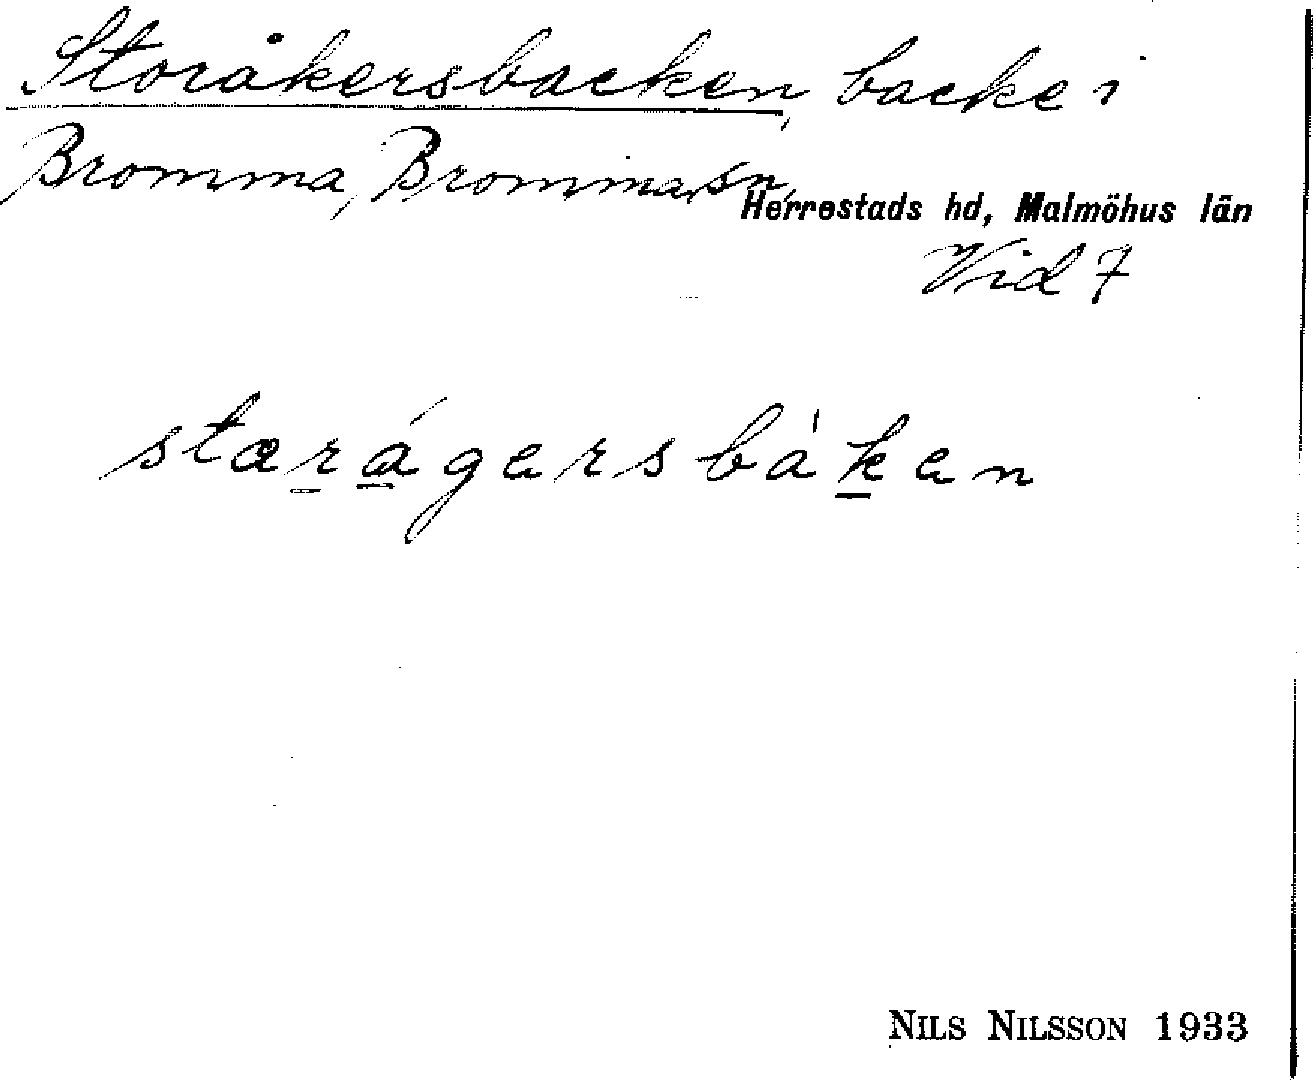 Storåkersbacken, backe i
Bromma, Bromma sn,
Herrestads hd, Malmöhus län
Vid 7
stærágersbàken
NILS NILSSON 1933